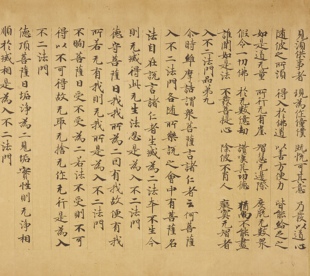 見須供事者 現為作僮僕 既悅可其意 乃發以道心
隨彼之所須 得入於佛道 以善方便力 皆能給足之
如是道无量 所行无有崖 智慧无邊際 度脫无數眾
假令一切佛 於无數億劫 讚嘆其功德 猶尚不能盡
誰聞如是法 不發菩提心 除彼不肖人 癡冥无智者
入不二法門品第九
尒時維摩詰謂眾菩薩言諸仁者云何菩薩
入不二法門各隨所樂說之會中有菩薩名
法自在說言諸仁者生滅為二法本不生今
則无滅得此无生法忍是為入不二法門
德守菩薩曰我我所為二因有我故便有我
所若无有我則无我所是為入不二法門
不眴菩薩曰受不受為二若法不受則不可
得以不可得故无取无捨无作无行是為入
不二法門
德頂菩薩曰垢淨為二見垢實性則无淨相
順於滅相是為入不二法門